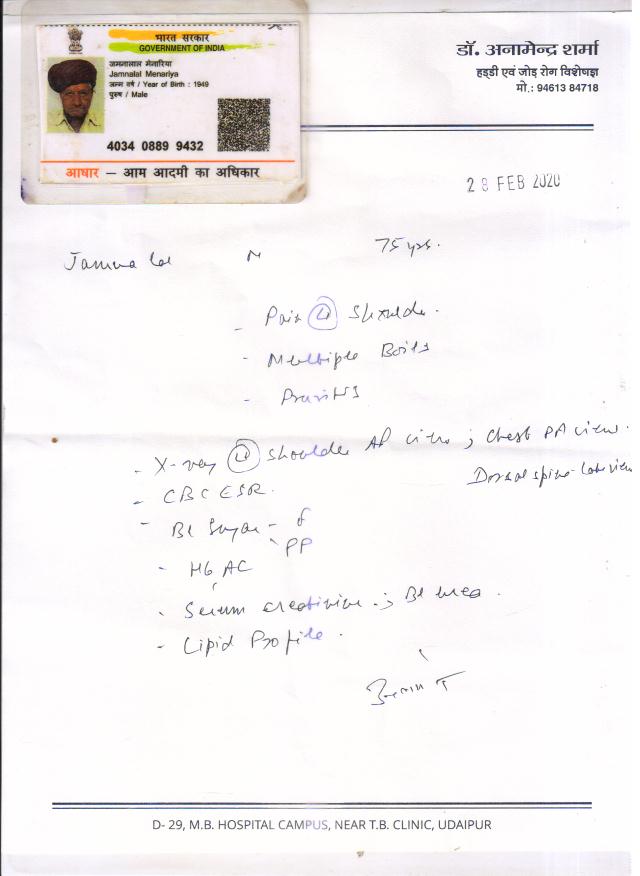 भारत सरकार
GOVERNMENT OF INDIA
जमनालाल मेनारिया
Jamnalal Menariya
जन्म वर्ष / Year of Birth : 1949
पुरुष / Male
4034 0889 9432
आधार – आम आदमी का अधिकार
डॉ. अनामेन्द्र शर्मा
हड्डी एवं जोड़ रोग विशेषज्ञ
मो.: 94613 84718
28 FEB 2020
Jamna lal M 75 yrs.
- Pain Shoulder.
- Multiple Boils
- Pruritis
- X-ray shoulder AP view ; Chest PA view.
Dorsal spine Lat view
- CBC ESR.
- Bl Sugar - F
- PP
- Serum creatinine ; Bl urea.
- Lipid Profile.
D- 29, M.B. HOSPITAL CAMPUS, NEAR T.B. CLINIC, UDAIPUR